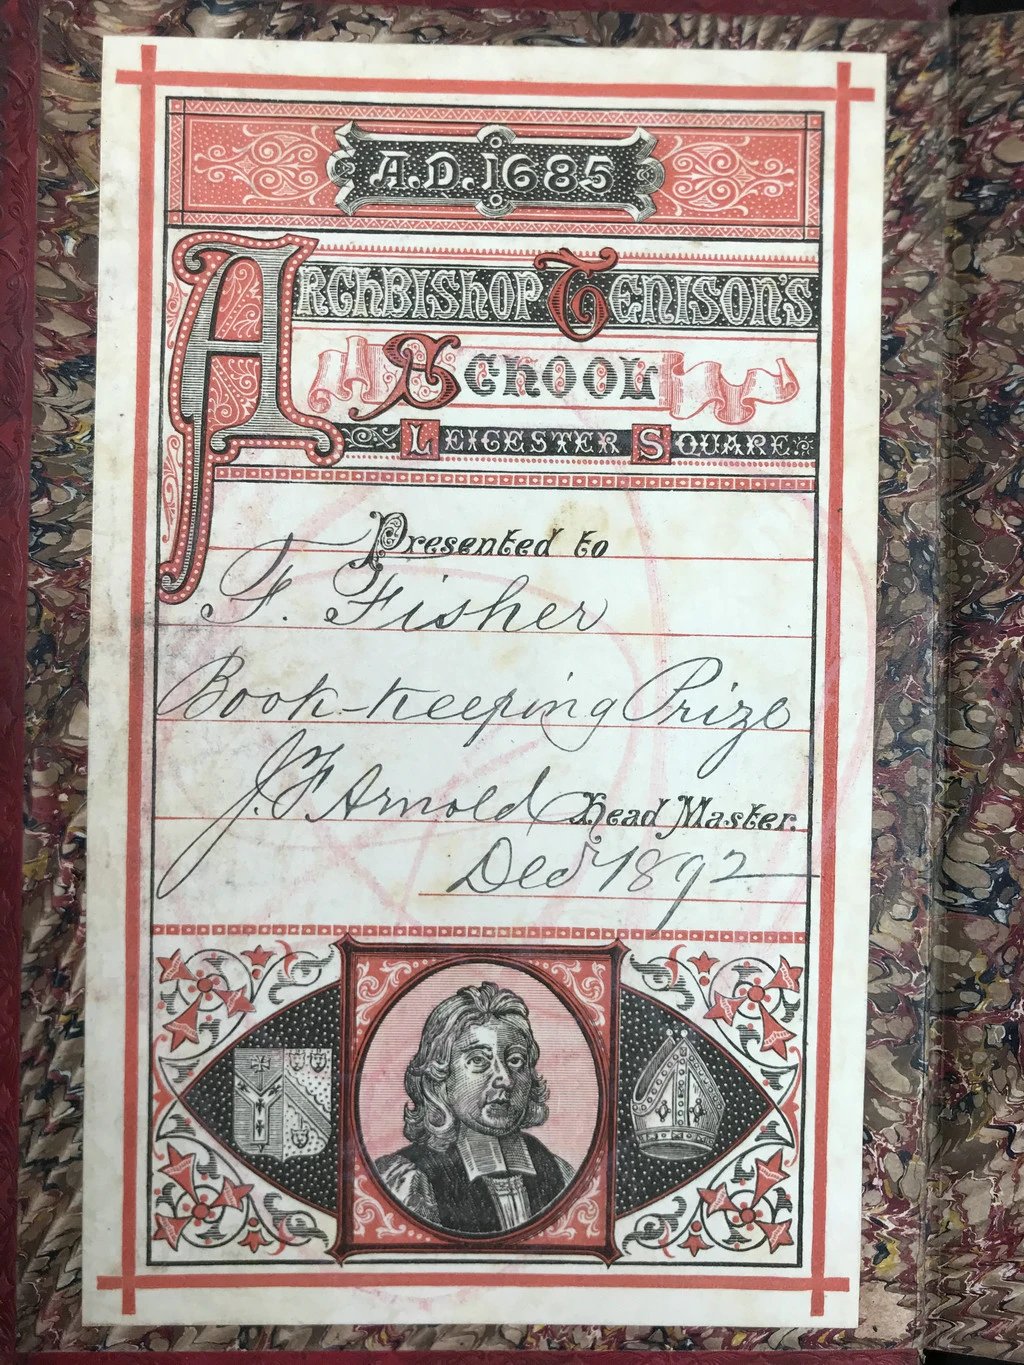 A.D. 1685
ARCHBISHOP TENISON'S
SCHOOL
LEICESTER SQUARE.
Presented to
F. Fisher
Book-keeping Prize
J. F. Arnold Head Master.
Decr 1892